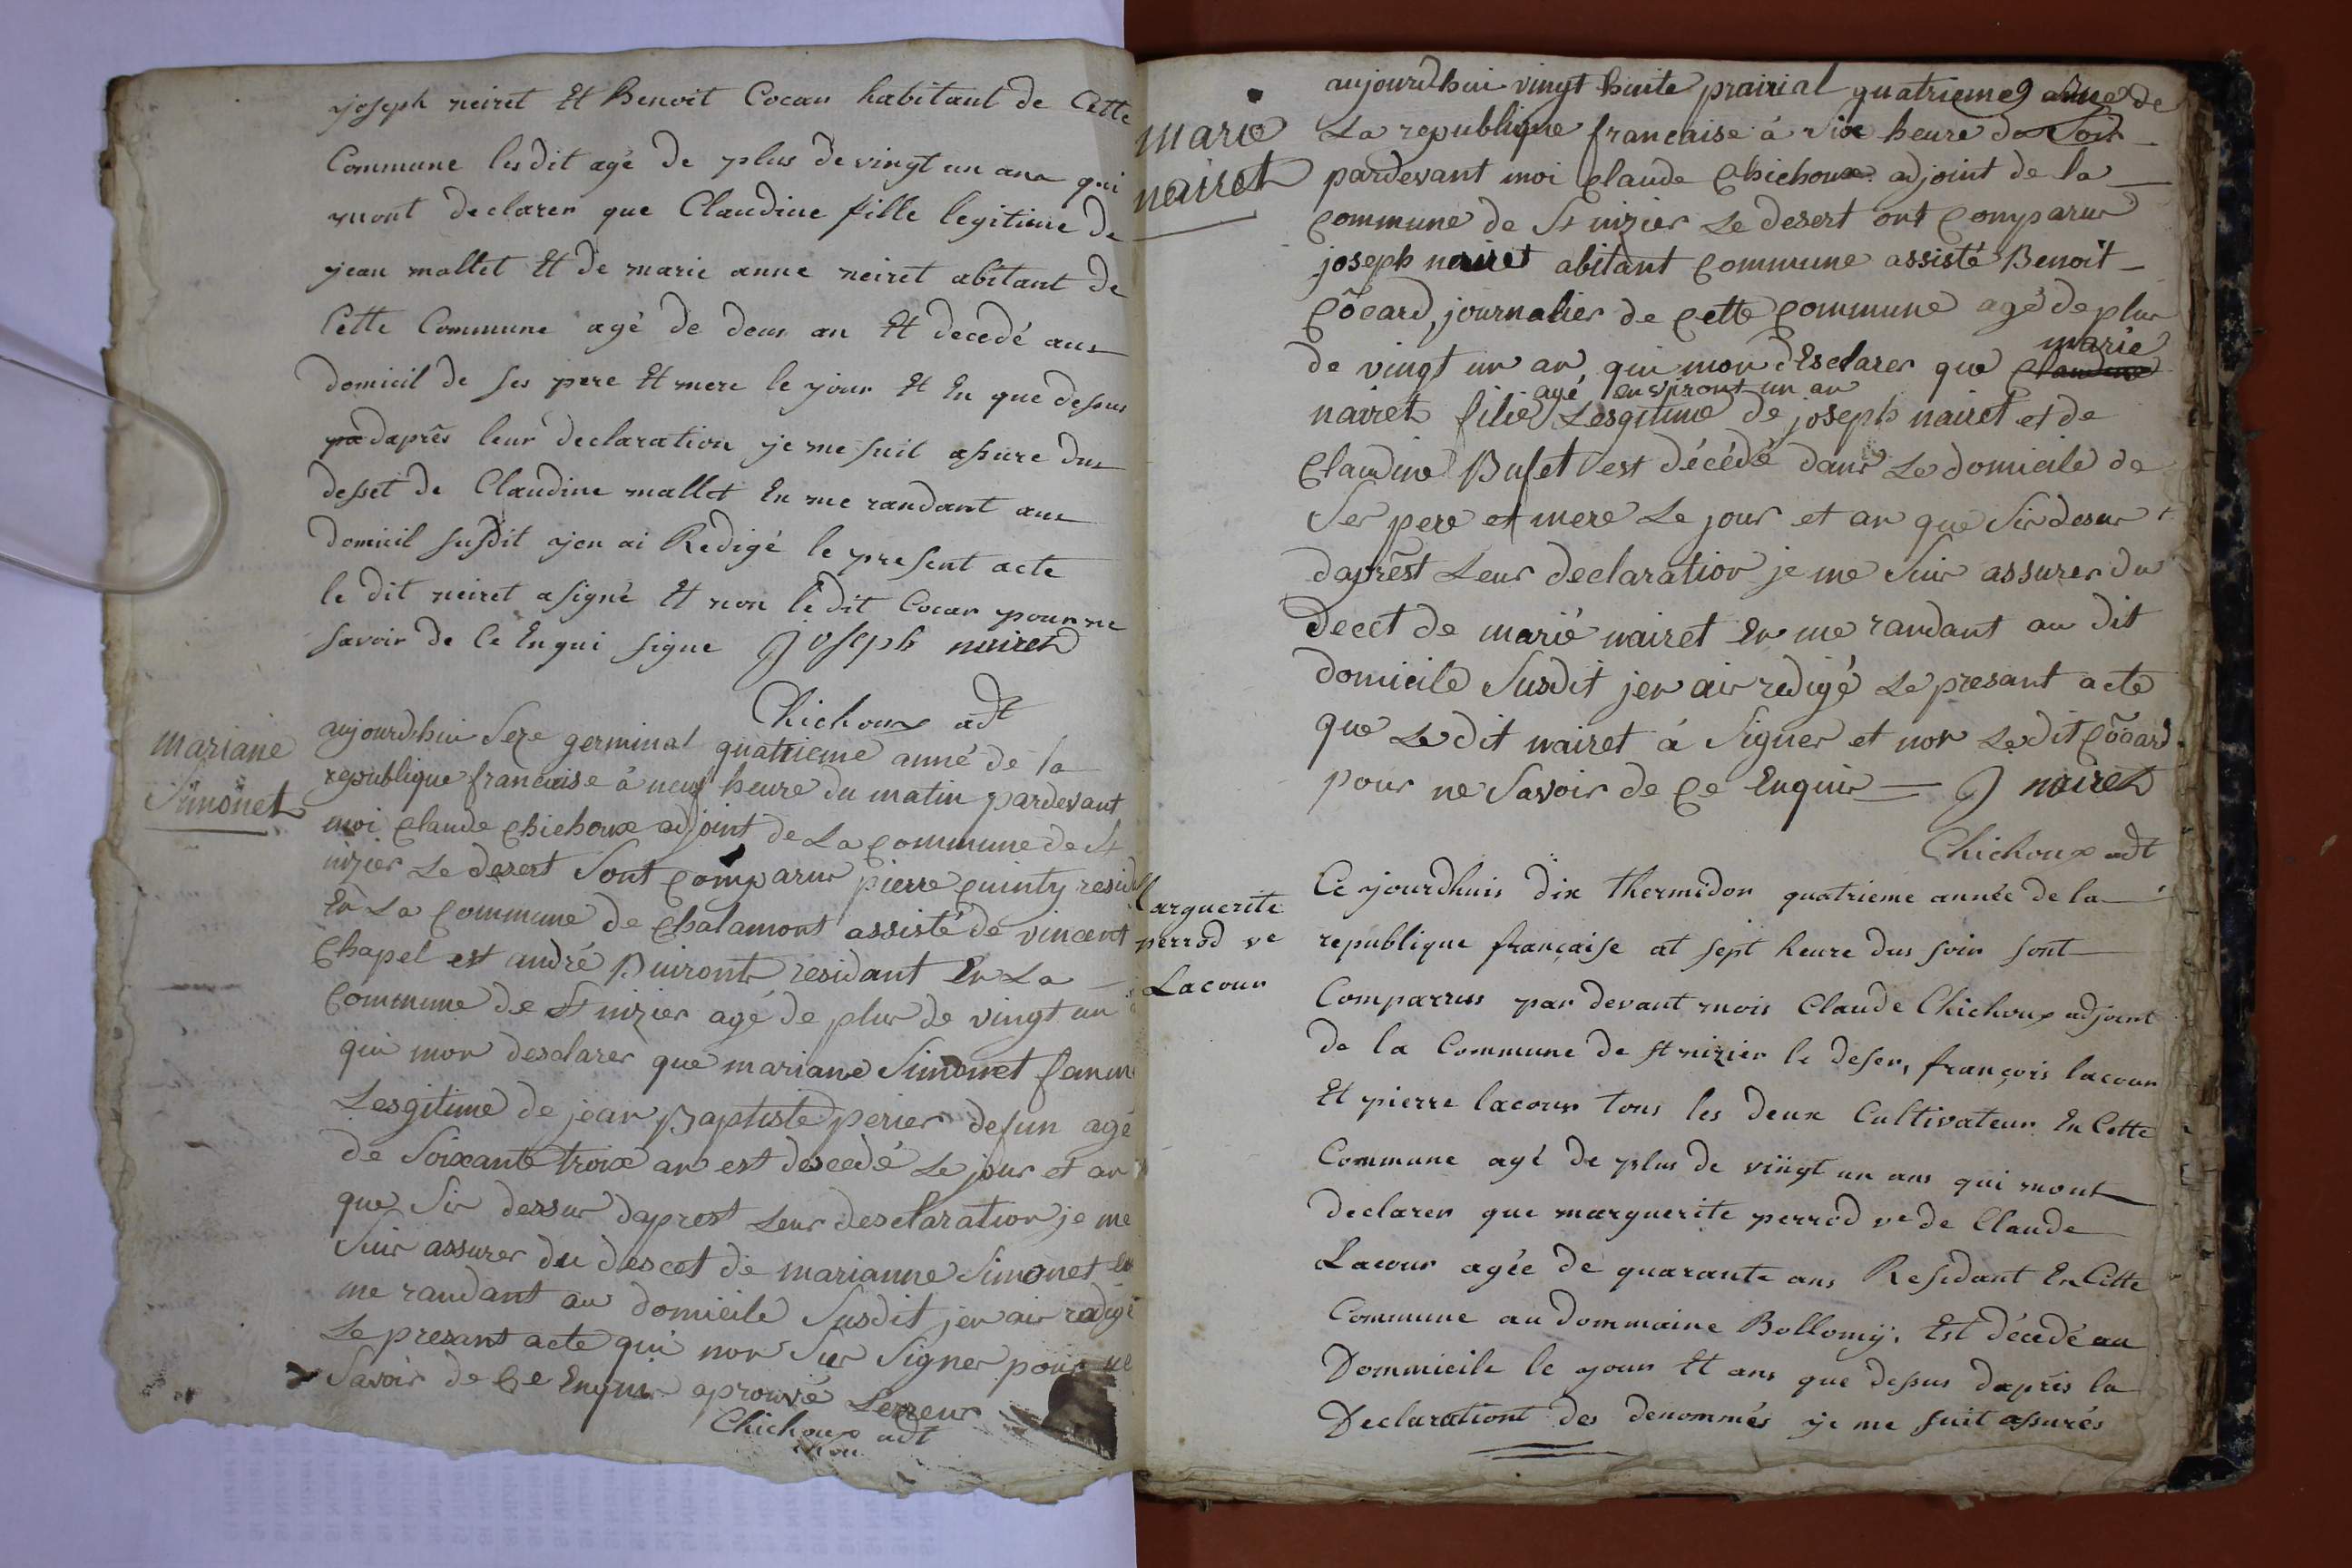 joseph neiret Et Benoit Cocar habitant de Cette
Commune lesdit agé de plus de vingt un ans qui
mont declarer que Claudine fille legitime de
jean mallet Et de marie anne neiret abitant de
Cette Commune agé de deus an Et decedé aus
domicil de ses pere Et mere le jour Et En que dessus
daprês leur declaration je me suit assure dus
desset de Claudine mallet En me randant aus
domicil susdit jen ai Redigé le present acte
le dit neiret asigné Et non le dit Cocar pour ne
savoir de Ce Enqui signe Joseph neiret
Chichoux adt
mariane
Simonet
aujourdhui Seze germinal quatrieme anné de la
republique francaise à neuf heure du matin pardevant
moi Claude Chichoux adjoint de La Commune de St
nizier Le desert Sont Comparus pierre Quinty resid
En La Commune de Chalamont assisté de vincent
Chapel est andré Buiront residant En La
Commune de St nizier agé de plus de vingt un
qui mon desclarer que mariane Simonet femm
Lesgitime de jean Baptiste perier defun agé
de Soixante troix an est descedé Le jour et an
que Sir dessus daprest Leur desclaration je me
Suis assurer du descet de marianne Simonet en
me randant au domicile Susdit jen air redigé
Le presant acte qui non Sur Signer pour ne
Savoir de Ce Enquir aprouvé Lerreur
Chichoux adt
marie
nairet
aujourdhui vingt huite prairial quatrieme année de
La republique francaise à Six heure de Soir
pardevant moi Claude Chichoux adjoint de la
Commune de St nizier Le desert ont Comparus
joseph nairet abitant Commune assisté Benoit
Côcard, journalier de Cette Commune agé de plus
de vingt un an qui mon dEsclarer que Claudine marie
agé environt un an
nairet filie Lesgitime de joseph nairet et de
Claudine Bufet est décédé dans Le domicile de
Ses pere et mere Le jour et an que Sir desus
daprêst Leur declaration je me Suis assurer du
decet de marié nairet En me randant au dit
domicile Susdit jen air redigé Le presant acte
que Le dit nairet à Signer et non Le dit Côcard
pour ne Savoir de Ce Enquir J nairet
Chichoux adt
Marguerite
perrod ve
Lacour
Ce yourdhuis dix thermidor quatrieme année de la
republique française at sept heure dus soir sont
Comparrus par devant mois Claude Chichoux adjoint
de la Commune de st nizier le deser, françois lacour
Et pierre lacour tous les deux Cultivateur En Cette
Commune agé de plus de vingt un ans qui mont
declarer que marguerite perrod ve de Claude
Lacour agée de quarante ans Residant En Cette
Commune au dommaine Bollomÿ. Est décedé au
Dommicile le your Et ans que dessus daprês la
Declarationt des denommés je me suit assurés